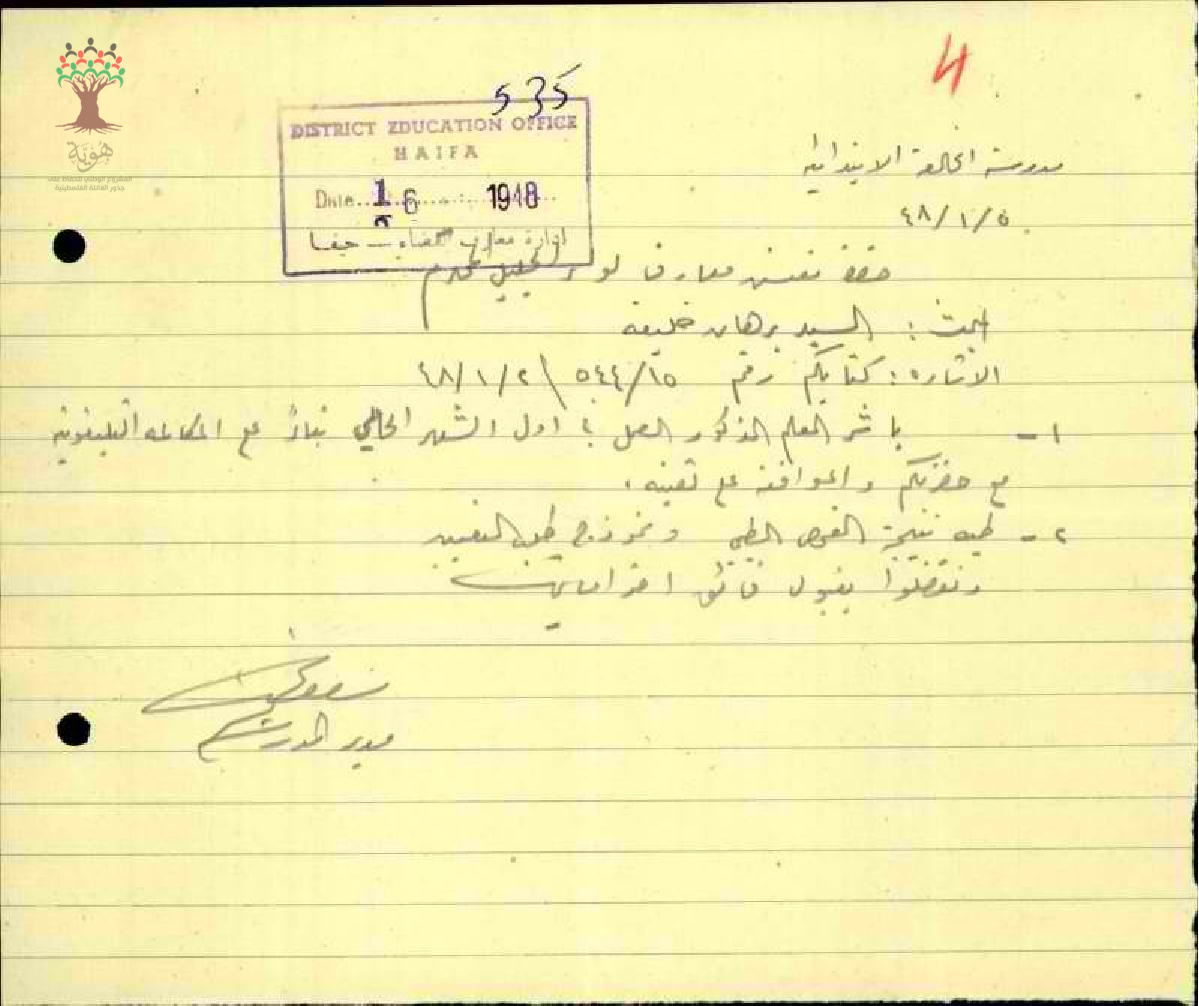 4
535
DISTRICT EDUCATION OFFICE
HAIFA
Date 1 6 1948
ادارة معارف القضاء - حيفا
هوية
المشروع الوطني للحفاظ على
جذور العائلة الفلسطينية
مدرسة الخالصة الابتدائية
٤٨/١/٥
حضرة مفتش معارف لواء الجليل المحترم
البحث : السيد برهان خليفه
الاشاره : كتابكم رقم ٥٤٤/١٥ \ ٤٨/١/٢
١ - باشر المعلم المذكور العمل في اول الشهر الحالي بناءً على المكالمه التليفونيه
مع حضرتكم والموافقه على تعيينه .
٢ - طيه نتيجة الفحص الطبي ونموذج طلب التعيين
وتفضلوا بقبول فائق احترامي
مدير المدرسة